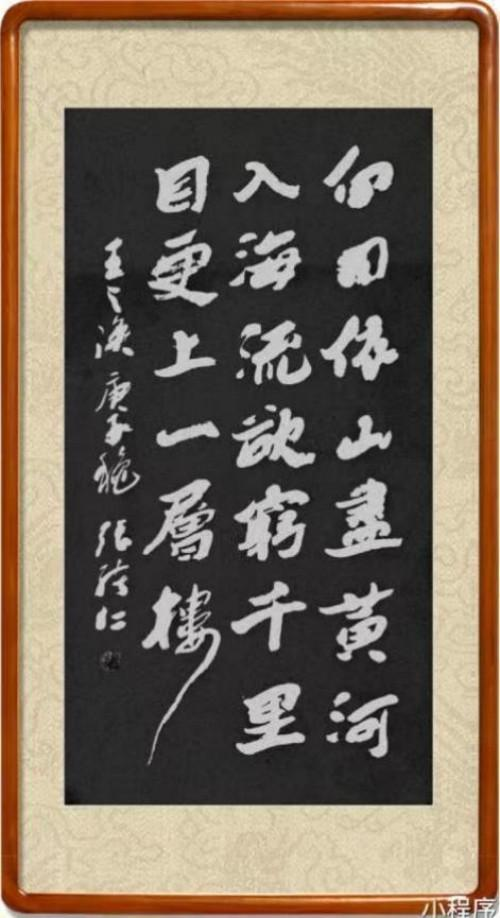 白日依山盡黄河
入海流欲窮千里
目更上一層樓
王之渙 庚子 張 仁
小程序